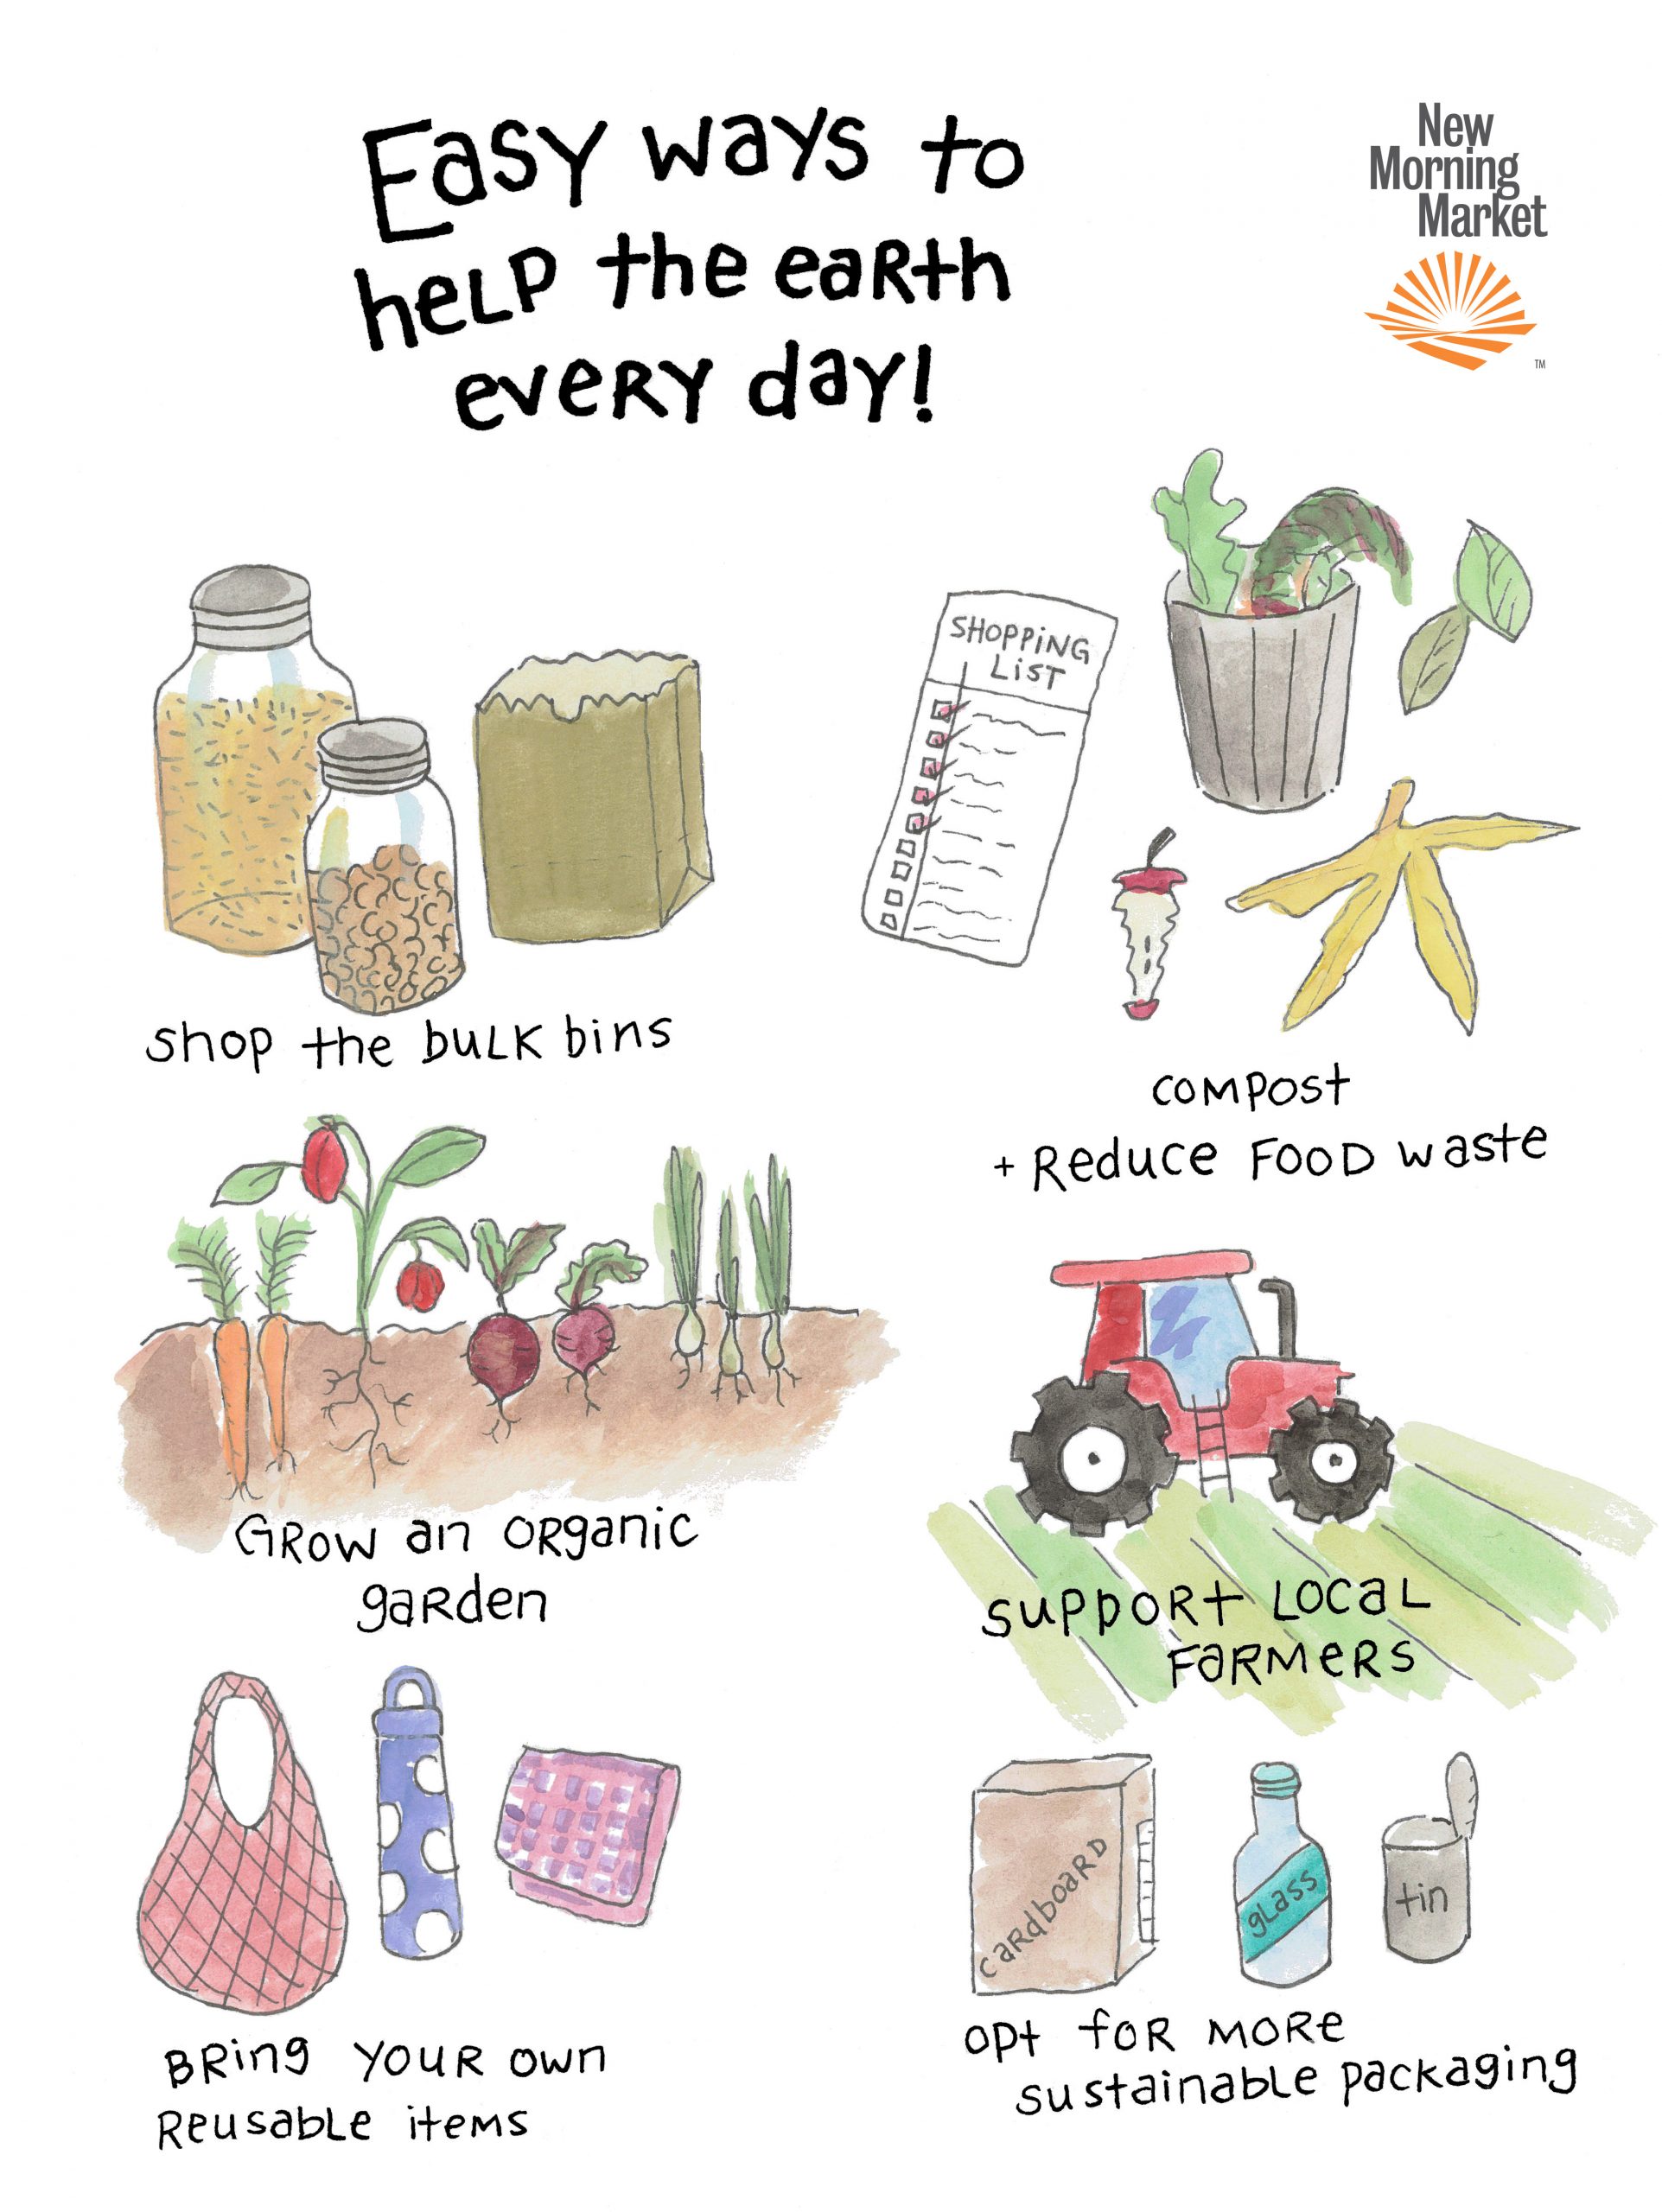 Easy ways to
help the earth
every day!
New
Morning
Market
TM
SHOPPiNG
LiST
shop the bulk bins
compost
+ Reduce Food waste
Grow an organic
garden
support Local
Farmers
Bring your own
Reusable items
cardboard
glass
tin
opt for more
sustainable packaging